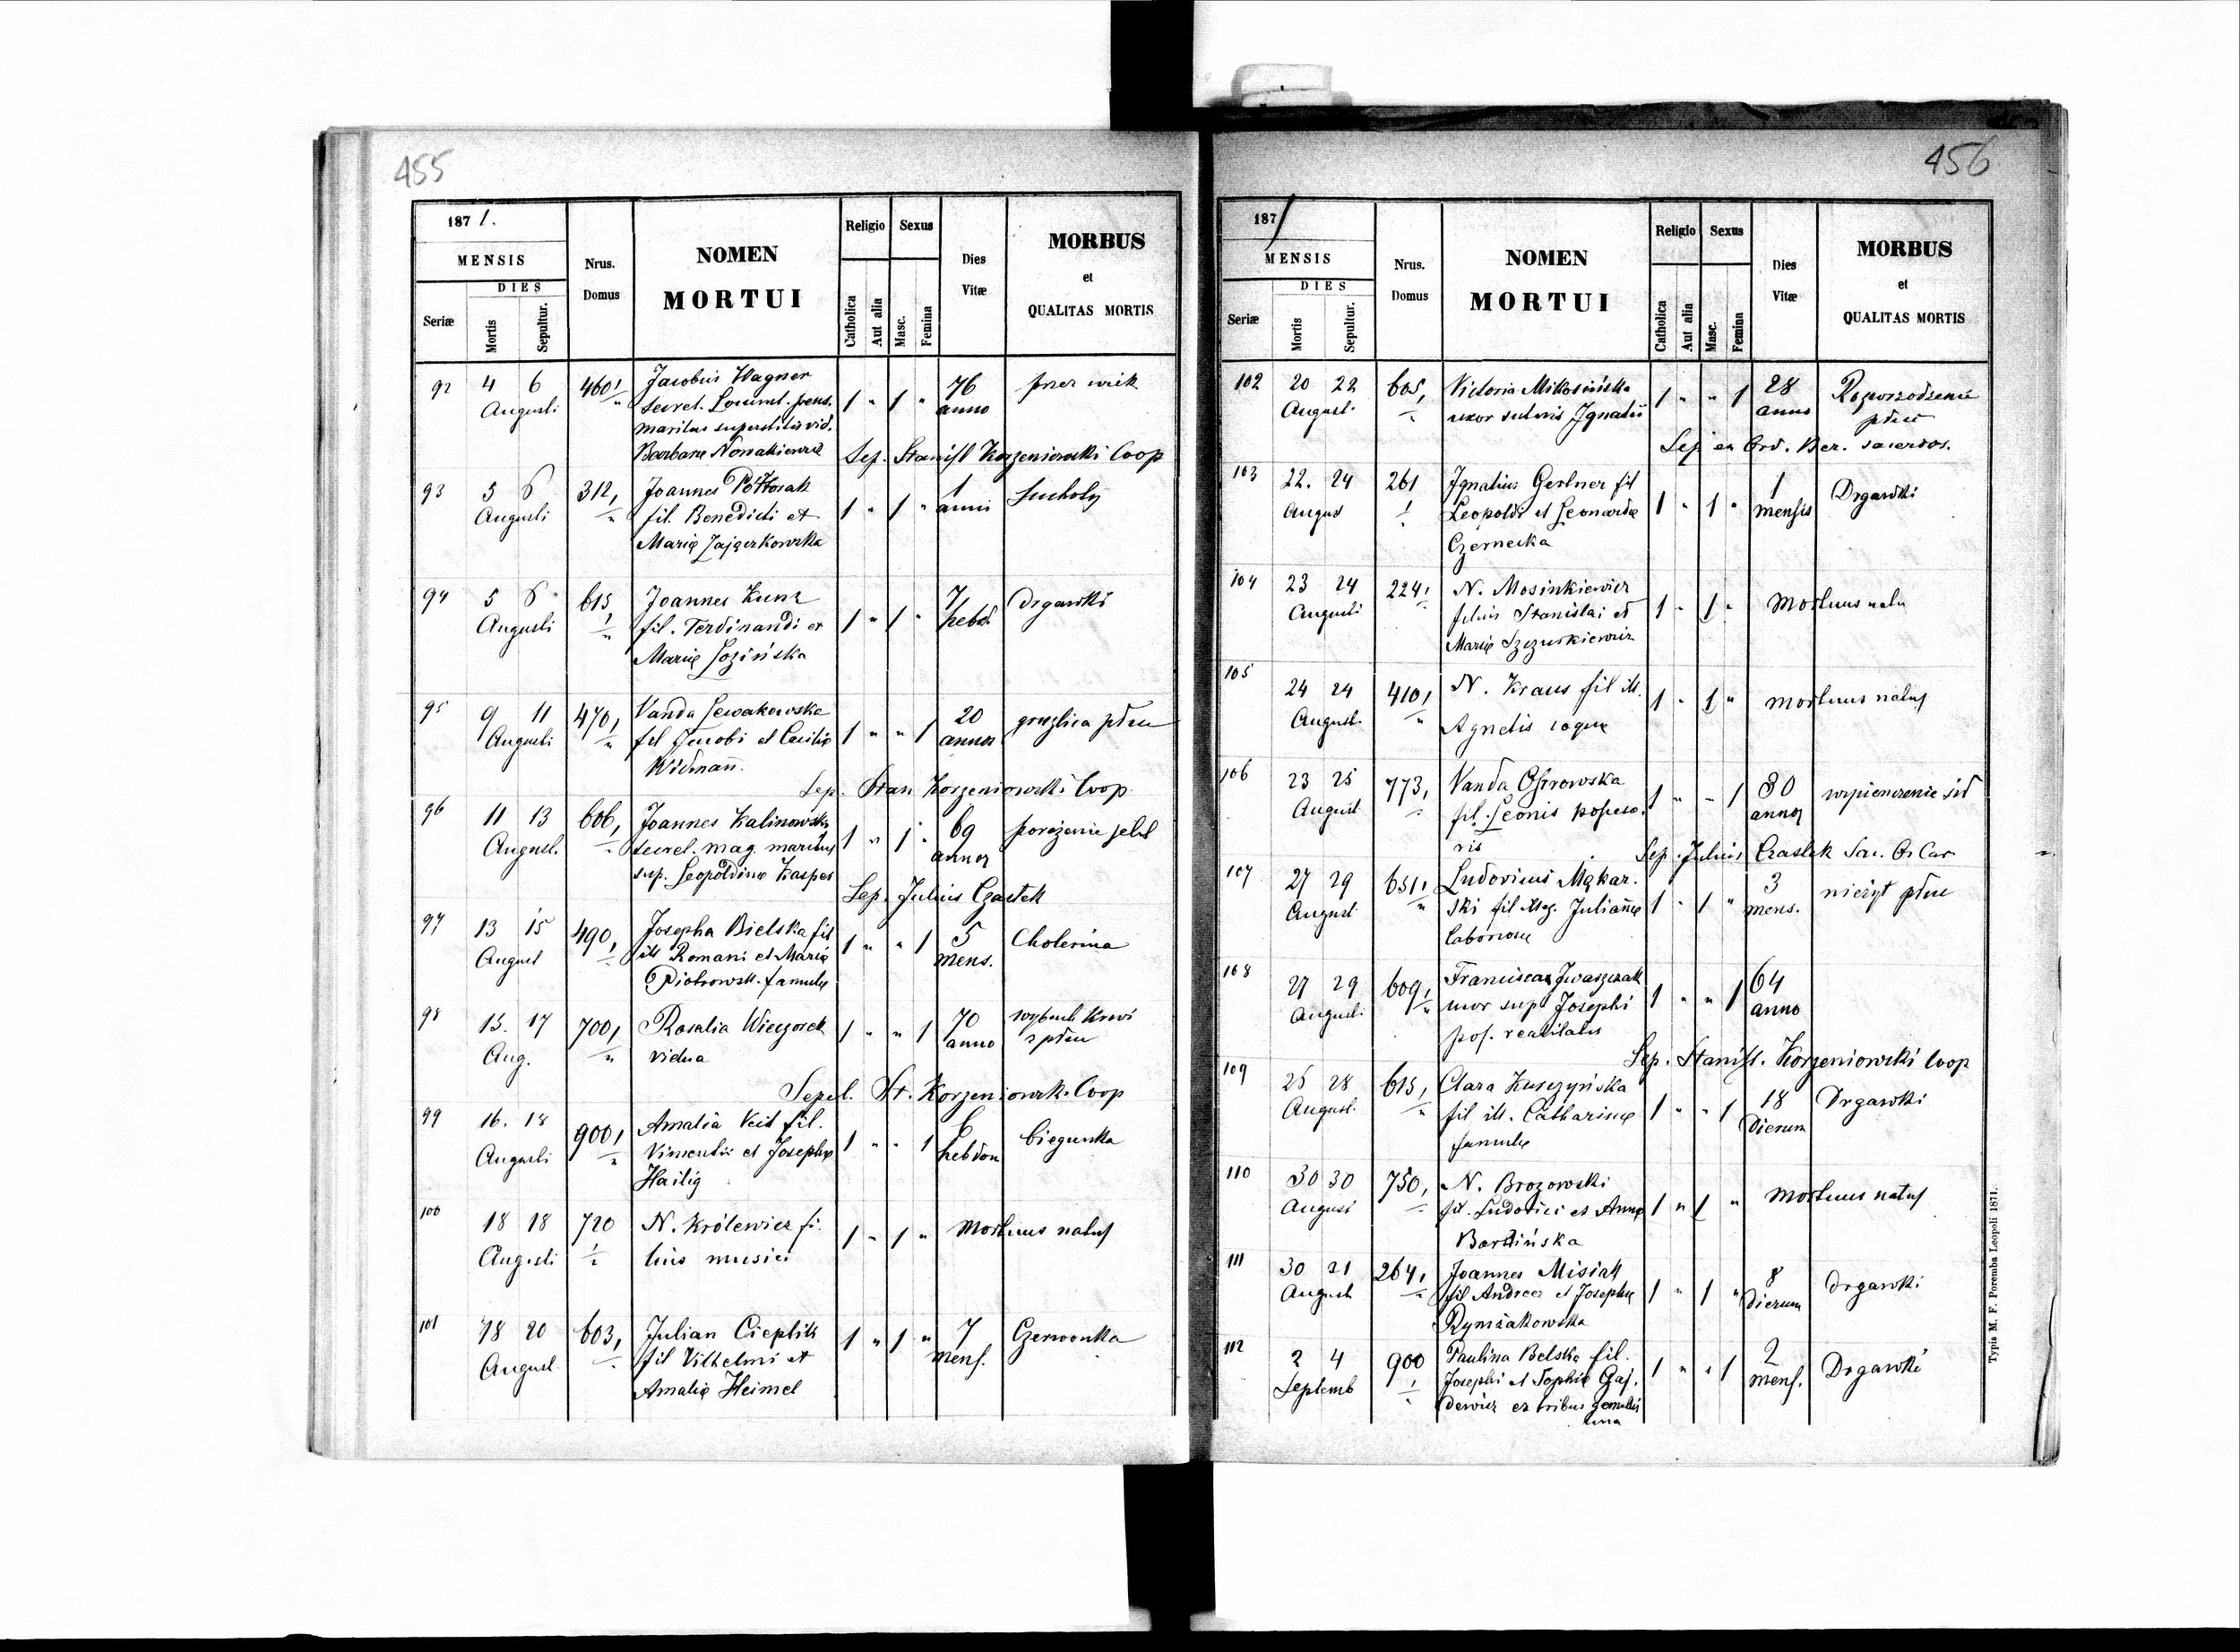 455
187 1.
MENSIS
DIES
Seriæ
Mortis
Sepultur.
Nrus.
Domus
NOMEN
MORTUI
Religio
Sexus
Catholica
Aut alia
Masc.
Femina
Dies
Vitæ
MORBUS
et
QUALITAS MORTIS
92 4 6 460 Jacobus Wagner 1 " 1 " 76 przez wiek
Augusti secret. pens. anno
maritus superstitis vid.
Barbare Nowakiewicz Sep. Stanisl Korzeniowski Coop
93 5 6 312, Joannes Pottorak 1 " 1 " 1 Suchoty
Augusti fil. Benedicti et anni
Mariæ Zajączkowska
94 5 6 615 Joannes Kunz 1 " 1 " 7 Drgawki
Augusti fil. Ferdinandi et hebd.
Mariæ Łozińska
95 9 11 470, Vanda Lewakowska 1 " " 1 20 gruzlica płuc
Augusti fil Jacobi et Cecilie annor
Widmann.
Sep. Stan Korzeniowski Coop
96 11 13 606, Joannes Kalinowski 1 " 1 " 69 porażenie
August. secret. mag. maritus annor
sup. Leopoldinæ Kasper
Sep. Julius Czastek
97 13 15 490, Josepha Bielska fil 1 " " 1 5 Cholerina
August ill Romani et Mariæ mens.
Piotrowsk. famulæ
98 15. 17 700, Rosalia Wieczorek 1 " " 1 70 wybuch krwi
Aug. vidua anno z płuc
Sepel. St. Korzeniowsk. Coop
99 16. 18 900, Amalia Veit fil. 1 " " 1 6 biegunka
Augusti Vincentii et Josephæ hebdom
Hailig
100 18 18 720 N. Królewicz fi 1 " 1 " Mortuus natus
Augusti lius musici
101 18 20 603, Julian Cieplik 1 " 1 " 7 Czerwonka
August fil Vilhelmi et mens.
Amaliæ Heimel
456
187 1
MENSIS
DIES
Seriæ
Mortis
Sepultur.
Nrus.
Domus
NOMEN
MORTUI
Religio
Sexus
Catholica
Aut alia
Masc.
Femina
Dies
Vitæ
MORBUS
et
QUALITAS MORTIS
102 20 22 605, Victoria Mikosińska 1 " " 1 28
August. uxor sutoris Ignatii anno płuc
Sep ex Ord. Ber. sacerdos.
103 22. 24 261 Ignatius Gerlner fil 1 " 1 " 1 Drgawki
August Leopoldi et Leonardæ mensis
Czernecka
104 23 24 224, N. Mosinkiewicz 1 " 1 " Mortuus natu
Augusti filius Stanislai et
Mariæ Szczurkiewicz
105 24 24 410, N. Kraus fil ill. 1 " 1 " mortuus natus
August. Agnetis coquæ
106 23 25 773, Vanda Ostrowska 1 " " 1 30
August fil. Leonis posseso. annor
ris Sep. Julius Czastek
107 27 29 651, Ludovicus Mąkar. 1 " 1 " 3 nieżyt płuc
August ski fil illeg. Juliannæ mens.
laboriosæ
108 27 29 609, Francisca Iwaszczak 1 " " 1 64
Augusti uxor sup. Josephi anno
pos. realitatis
Sep. Stanisl. Korzeniowski Coop
109 26 28 615, Clara Kuszyńska 1 " " 1 18 Drgawki
August. fil ill. Catharinæ Dierum
famulæ
110 30 30 750, N. Brozowski 1 " 1 " Mortuus natus
August fil. Ludovici et Annæ
Bardińska
111 30 21 264, Joannes Misiak 1 " 1 " 8 Drgawki
August fil Andreæ et Josephæ Dierum
Rymżakowska
112 2 4 900 Paulina Belska fil. 1 " " 1 2 Drgawki
Septemb Josephi et Sophiæ Gaj. mens.
dewicz ex tribus gemellis
una
Typis M. F. Poremba Leopoli 1871.